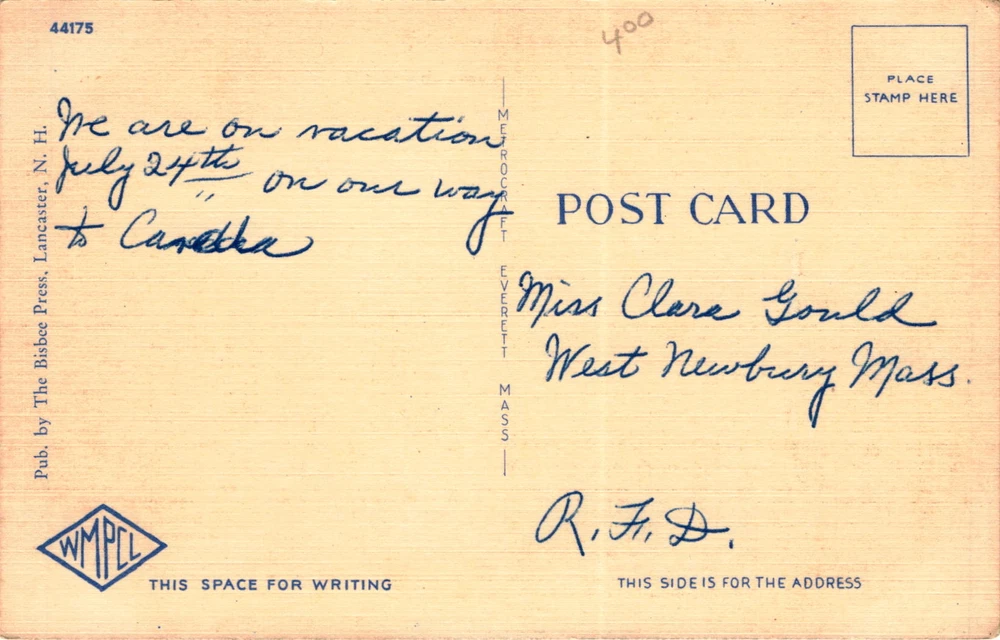 44175
400
PLACE
STAMP HERE
We are on vacation
July 24th on our way
to Canada
Pub. by The Bisbee Press, Lancaster, N. H.
METROCRAFT EVERETT MASS
POST CARD
Miss Clara Gould
West Newbury Mass.
R.F.D.
WMPCL
THIS SPACE FOR WRITING
THIS SIDE IS FOR THE ADDRESS